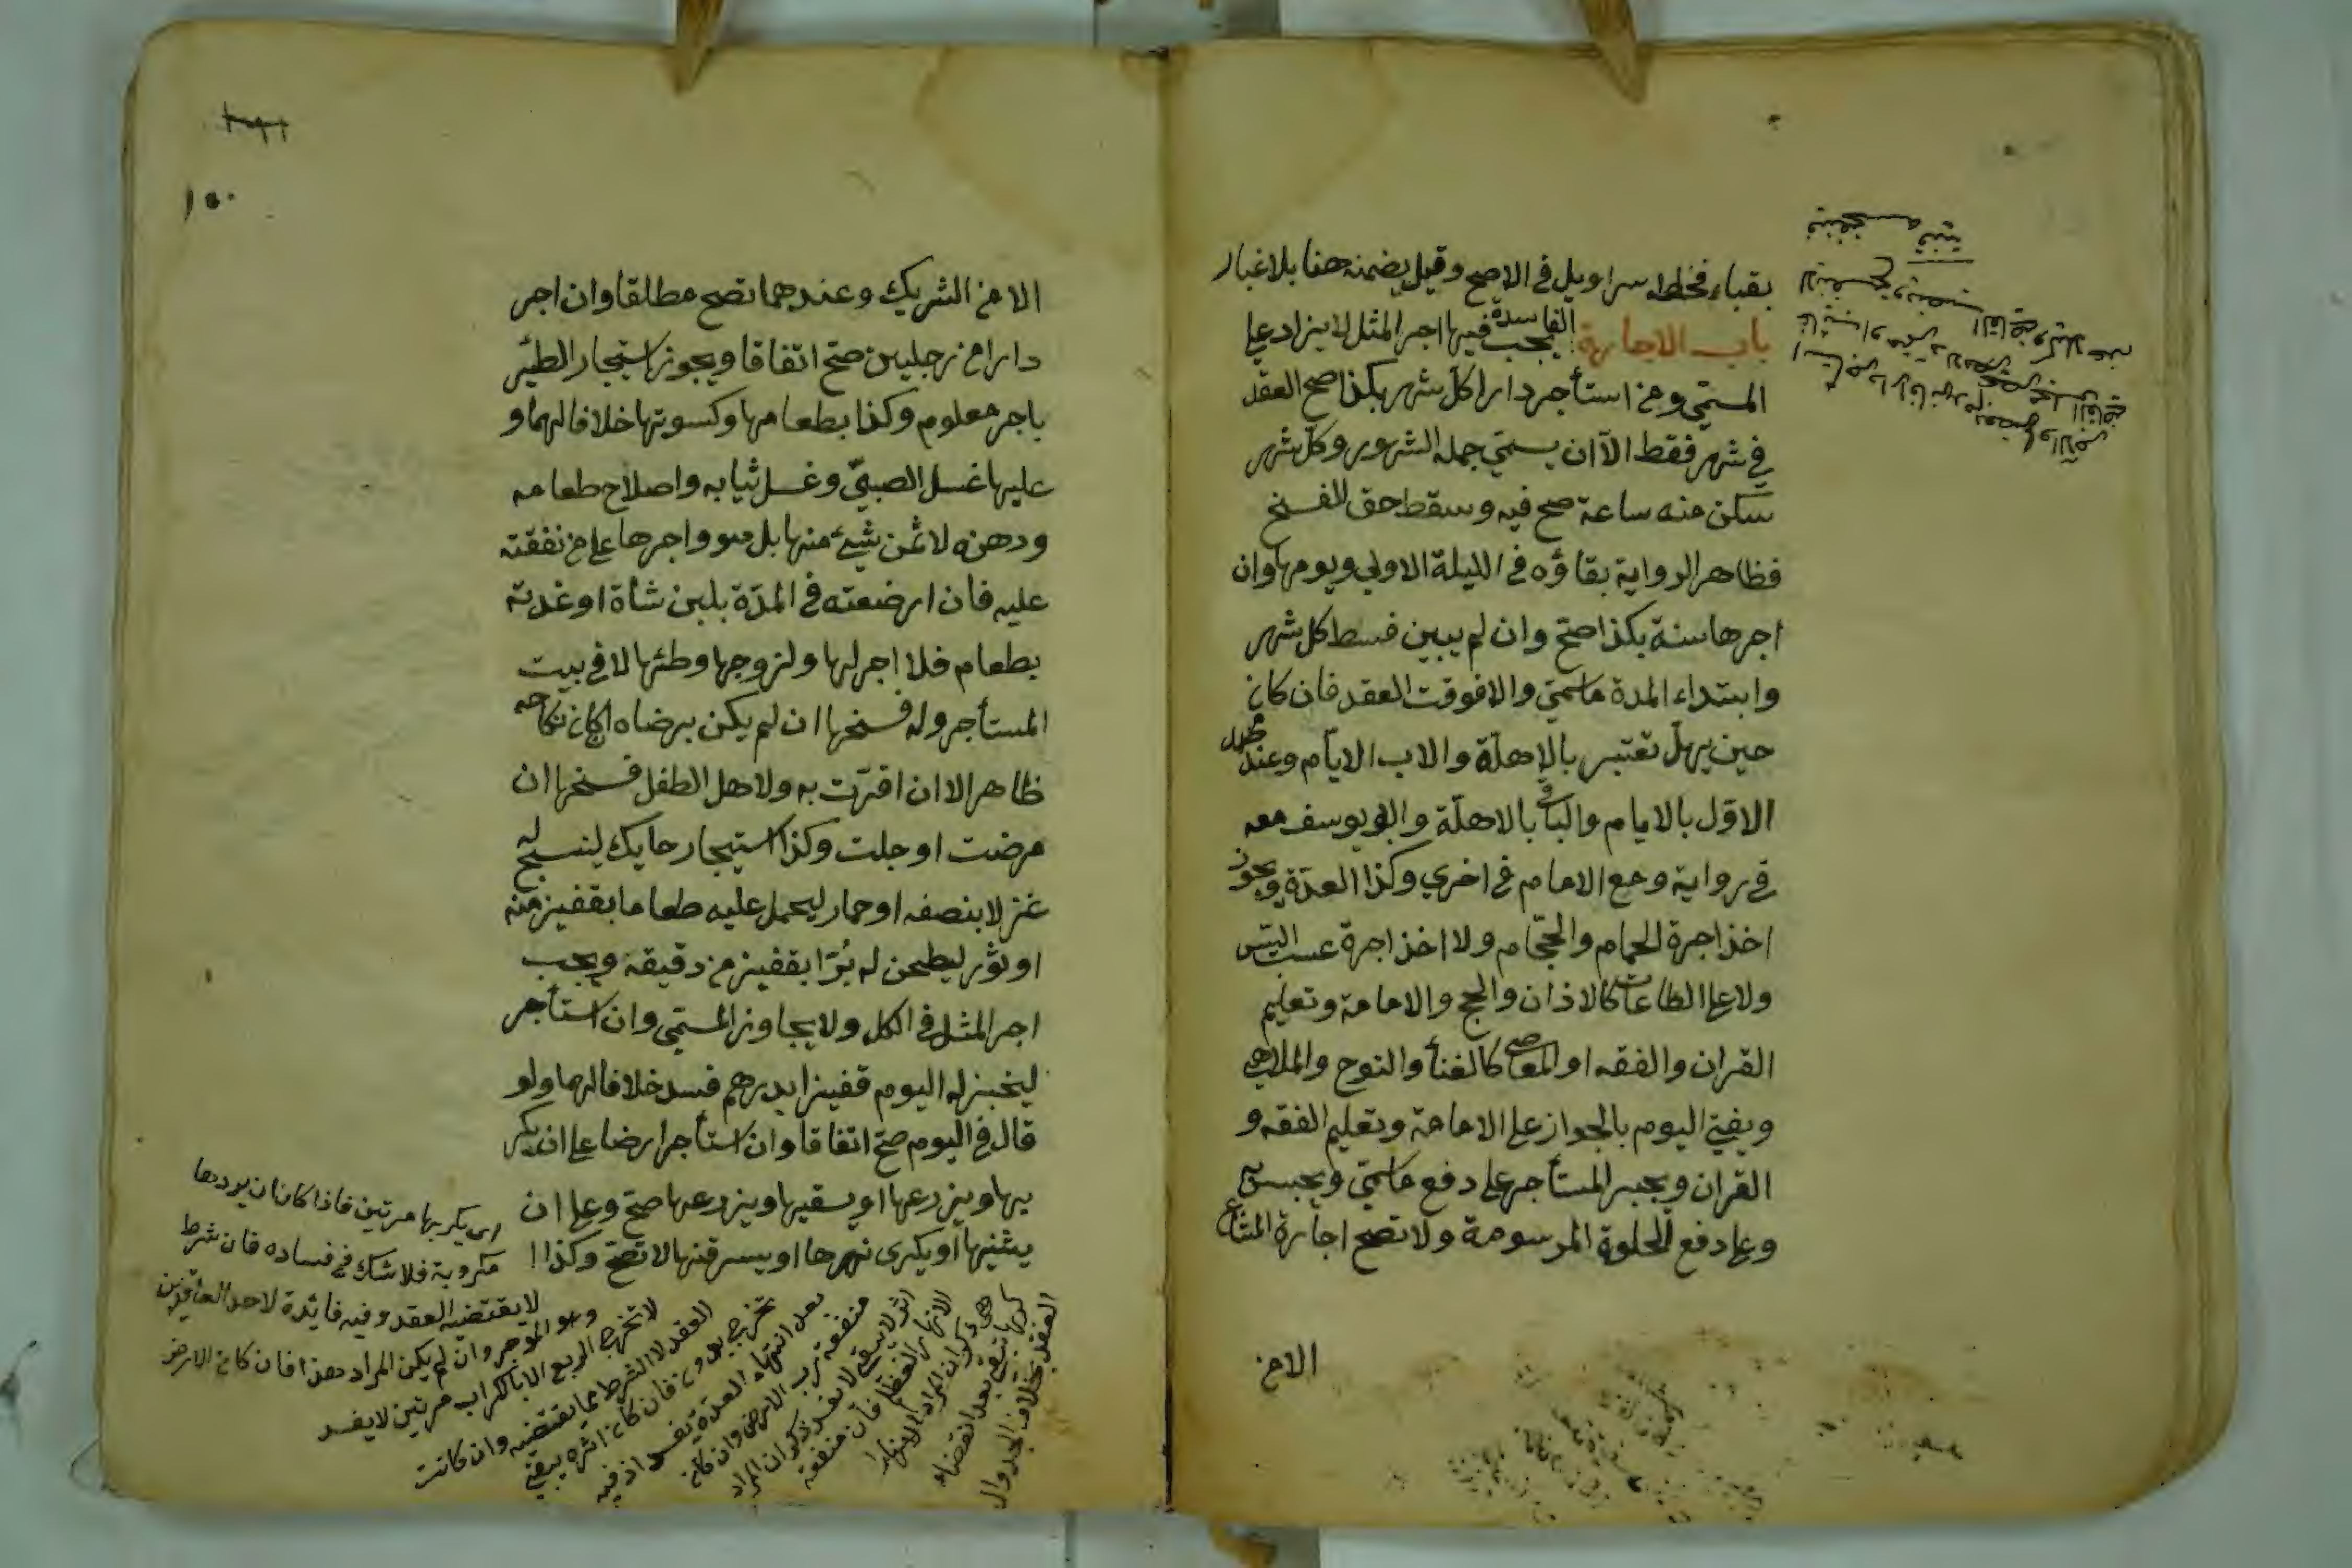 بقباء فخاطه سراويل في الاصح وقيل يضمنه هنا بلا غيار
باب الاجارة الفاسدة يجب فيها اجر المثل لا يزاد على
المسمّى ومن استأجر دارا كل شهر بكذا صح العقد
في شهر فقط الّا ان يسمّي جملة الشهور وكل شهر
سكن منه ساعة صح فيه وسقط حق الفسخ
فظاهر الرواية بقاؤه في الليلة الاولى ويومها وان
اجرها سنة بكذا صحّ وان لم يبين قسط كل شهر
وابتداء المدة ما سمّى والا فوقت العقد فان كان
حين يهلّ تعتبر بالاهلّة والا ب الايّام وعند محمد
الاوّل بالايام والباقي بالاهلّة وابو يوسف معه
في رواية ومع الامام في اخرى وكذا العدّة ويجوز
اخذ اجرة الحمام والحجّام ولا اخذ اجرة عسب التيس
ولا على الطاعات كالاذان والحج والامامة وتعليم
القران والفقه او المعاصي كالغنأ والنوح والملاهي
ويفتى اليوم بالجواز على الامامة وتعليم الفقه و
القران ويجبر المستأجر على دفع ما سمّى ويحبس به
وعلى دفع الحلوة المرسومة ولا تصح اجارة المشاع
الا من
١٥٠
الا من الشريك وعندهما تصح مطلقا وان اجر
دارا من رجلين صحّ اتفاقا ويجوز استيجار الظئر
باجر معلوم وكذا بطعامها وكسوتها خلافا لهما و
عليها غسل الصبيّ وغسل ثيابه واصلاح طعامه
ودهنه لا ثمن شيء منها بل هو واجرها على من نفقته
عليه فان ارضعته في المدّة بلبن شاة او غدته
بطعام فلا اجر لها ولزوجها وطئها لا في بيت
المستأجر وله فسخها ان لم يكن برضاه ان كان نكاحه
ظاهرا لا ان اقرّت به ولاهل الطفل فسخها ان
مرضت او حبلت وكذا استيجار حايك لينسج له
غزلا بنصفه او حمار ليحمل عليه طعاما بقفيز منه
او ثور ليطحن له بُرّا بقفيز من دقيقه ويجب
اجر المثل في الكل ولا يجاوز المسمّى وان استأجر
ليخبز له اليوم قفيزا بدرهم فسد خلافا لهما ولو
قال في اليوم صحّ اتفاقا وان استأجر ارضا على ان يكر
يها ويزرعها او يسقيها ويزرعها صحّ وعلى ان
يثنيها او يكري نهرها او يسرقنها لا تصحّ وكذا ا
اى يكربها مرتين فاذا كان ان يردها
مكروبة فلا شك في فساده فان شرط
لا يقتضيه العقد وفيه فائدة لاحد العاقدين
وهو الموجر وان لم يكن المراد هذا فان كان الارض
لا تخرج الريع الا بالكراب مرتين لا يفسد
العقد لا الشرط مما يقتضيه وان كانت
تخرج بدونه فان كان اثره يبقى
بعد انتهاء العقدة يفسد اذ فيه
منفعة لرب الارض وان كان
اثره لا يبقى لا يفسد ذكر ان المراد
الانهار العظام فان منفعة